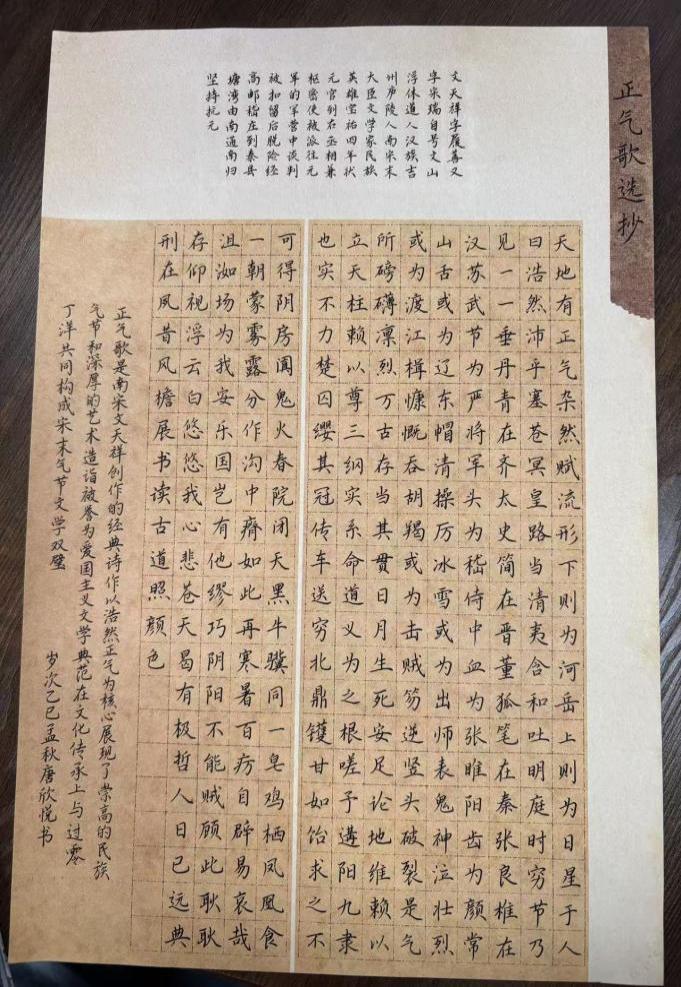 正气歌选抄
文天祥字履善又
字宋瑞自号文山
浮休道人汉族吉
州庐陵人南宋末
大臣文学家民族
英雄宝祐四年状
元官到右丞相兼
枢密使被派往元
军的军营中谈判
被扣留后脱险经
高邮嵇庄到泰县
塘湾由南通南归
坚持抗元
天地有正气杂然赋流形下则为河岳上则为日星于人
曰浩然沛乎塞苍冥皇路当清夷含和吐明庭时穷节乃
见一一垂丹青在齐太史简在晋董狐笔在秦张良椎在
汉苏武节为严将军头为嵇侍中血为张睢阳齿为颜常
山舌或为辽东帽清操厉冰雪或为出师表鬼神泣壮烈
或为渡江楫慷慨吞胡羯或为击贼笏逆竖头破裂是气
所磅礴凛烈万古存当其贯日月生死安足论地维赖以
立天柱赖以尊三纲实系命道义为之根嗟予遘阳九隶
也实不力楚囚缨其冠传车送穷北鼎镬甘如饴求之不
可得阴房阗鬼火春院闭天黑牛骥同一皂鸡栖凤凰食
一朝蒙雾露分作沟中瘠如此再寒暑百疠自辟易哀哉
沮洳场为我安乐国岂有他缪巧阴阳不能贼顾此耿耿
存仰视浮云白悠悠我心悲苍天曷有极哲人日已远典
刑在夙昔风檐展书读古道照颜色
正气歌是南宋文天祥创作的经典诗作以浩然正气为核心展现了崇高的民族
气节和深厚的艺术造诣被誉为爱国主义文学典范在文化传承上与过零
丁洋共同构成宋末气节文学双璧 岁次乙巳孟秋唐欣悦书